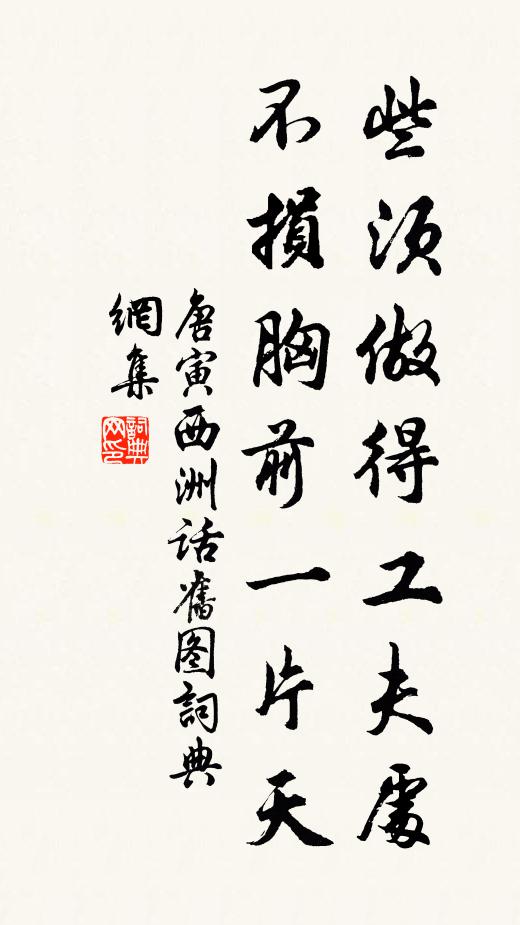 些须做得工夫處
不損胸前一片天
唐寅西洲話舊图詞典
網集
詞典
网印